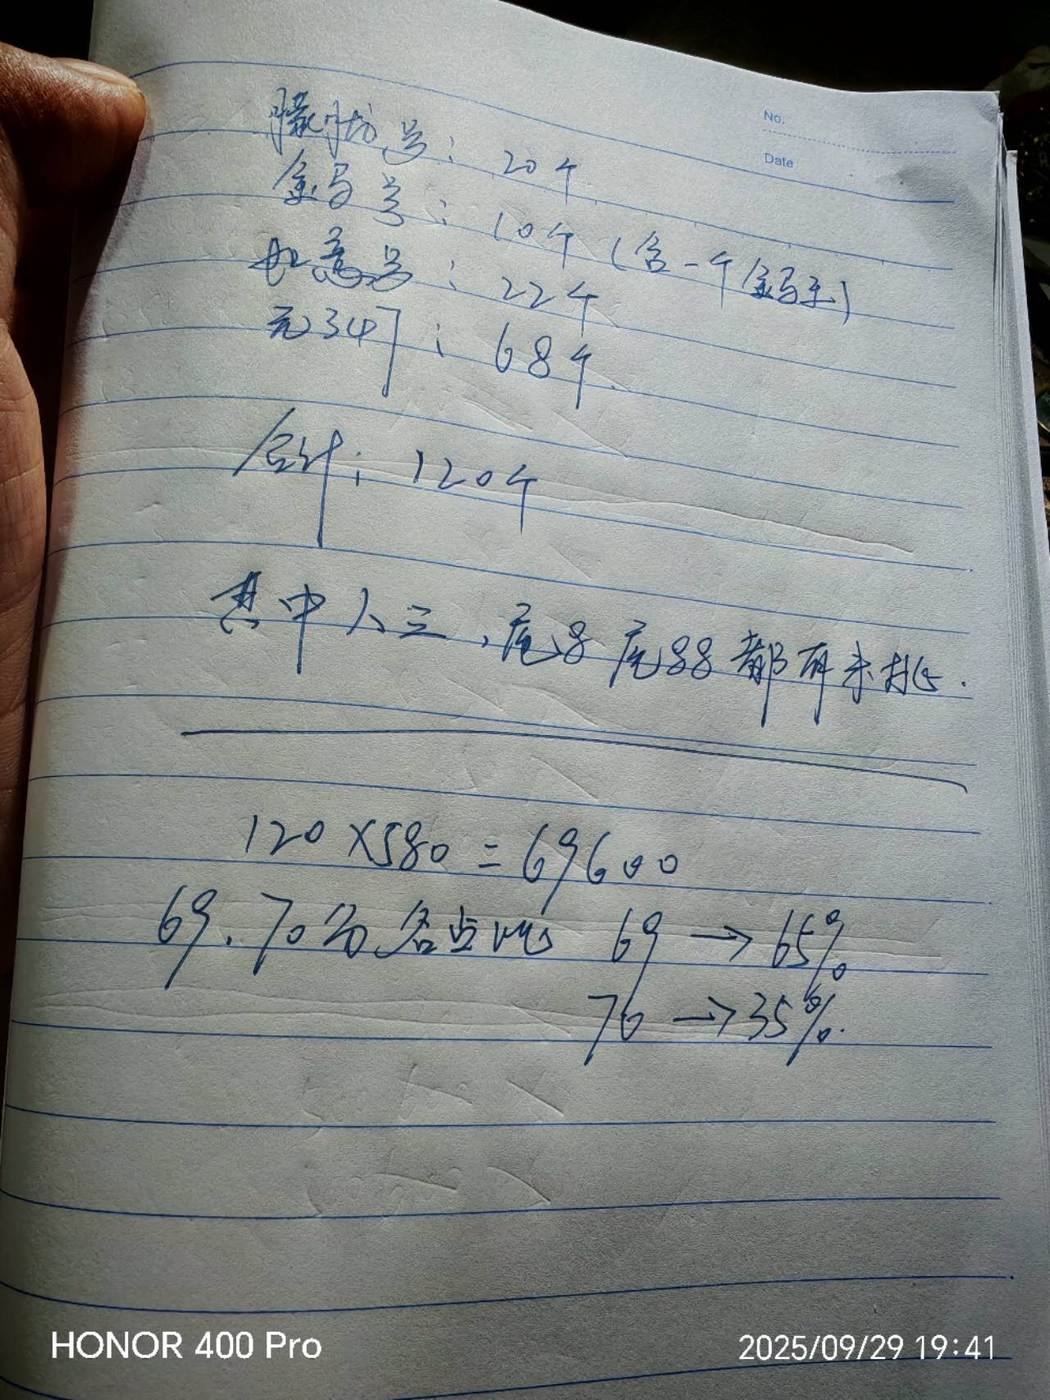 No.
Date
朦胧号：20个
金马号：10个（含一个金马王）
如意号：22个
无347：68个.
合计：120个
其中人三、尾8 尾88 都有未挑.
120×580=69600
69、70分各占比 69→65%
70→35%.
HONOR 400 Pro
2025/09/29 19:41